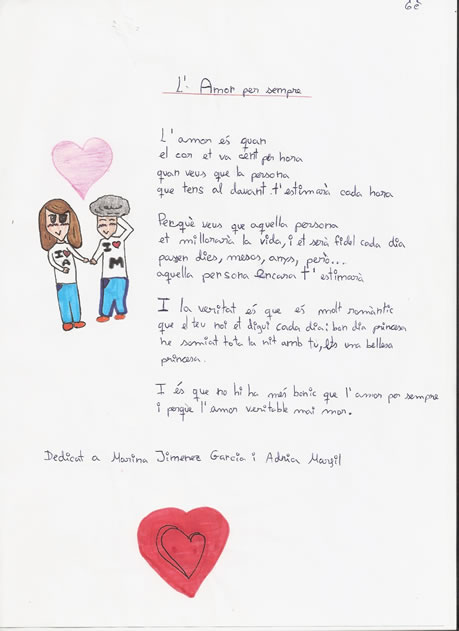 6è
L'. Amor per sempre
L'amor és quan
el cor et va cent per hora
quan veus que la persona
que tens al davant t'estimarà cada hora
Perquè veus que aquella persona
et millorarà la vida, i et serà fidel cada dia
passen dies, mesos, anys, però...
aquella persona encara t'estimarà
I la veritat és que és molt romàntic
que el teu noi et digui cada dia: bon dia princesa
he somiat tota la nit amb tu, ets una bellesa
princesa.
I és que no hi ha més bonic que l'amor per sempre
i perquè l'amor veritable mai mor.
I ♥ A
I ♥ M
Dedicat a Marina Jimenez Garcia i Adria